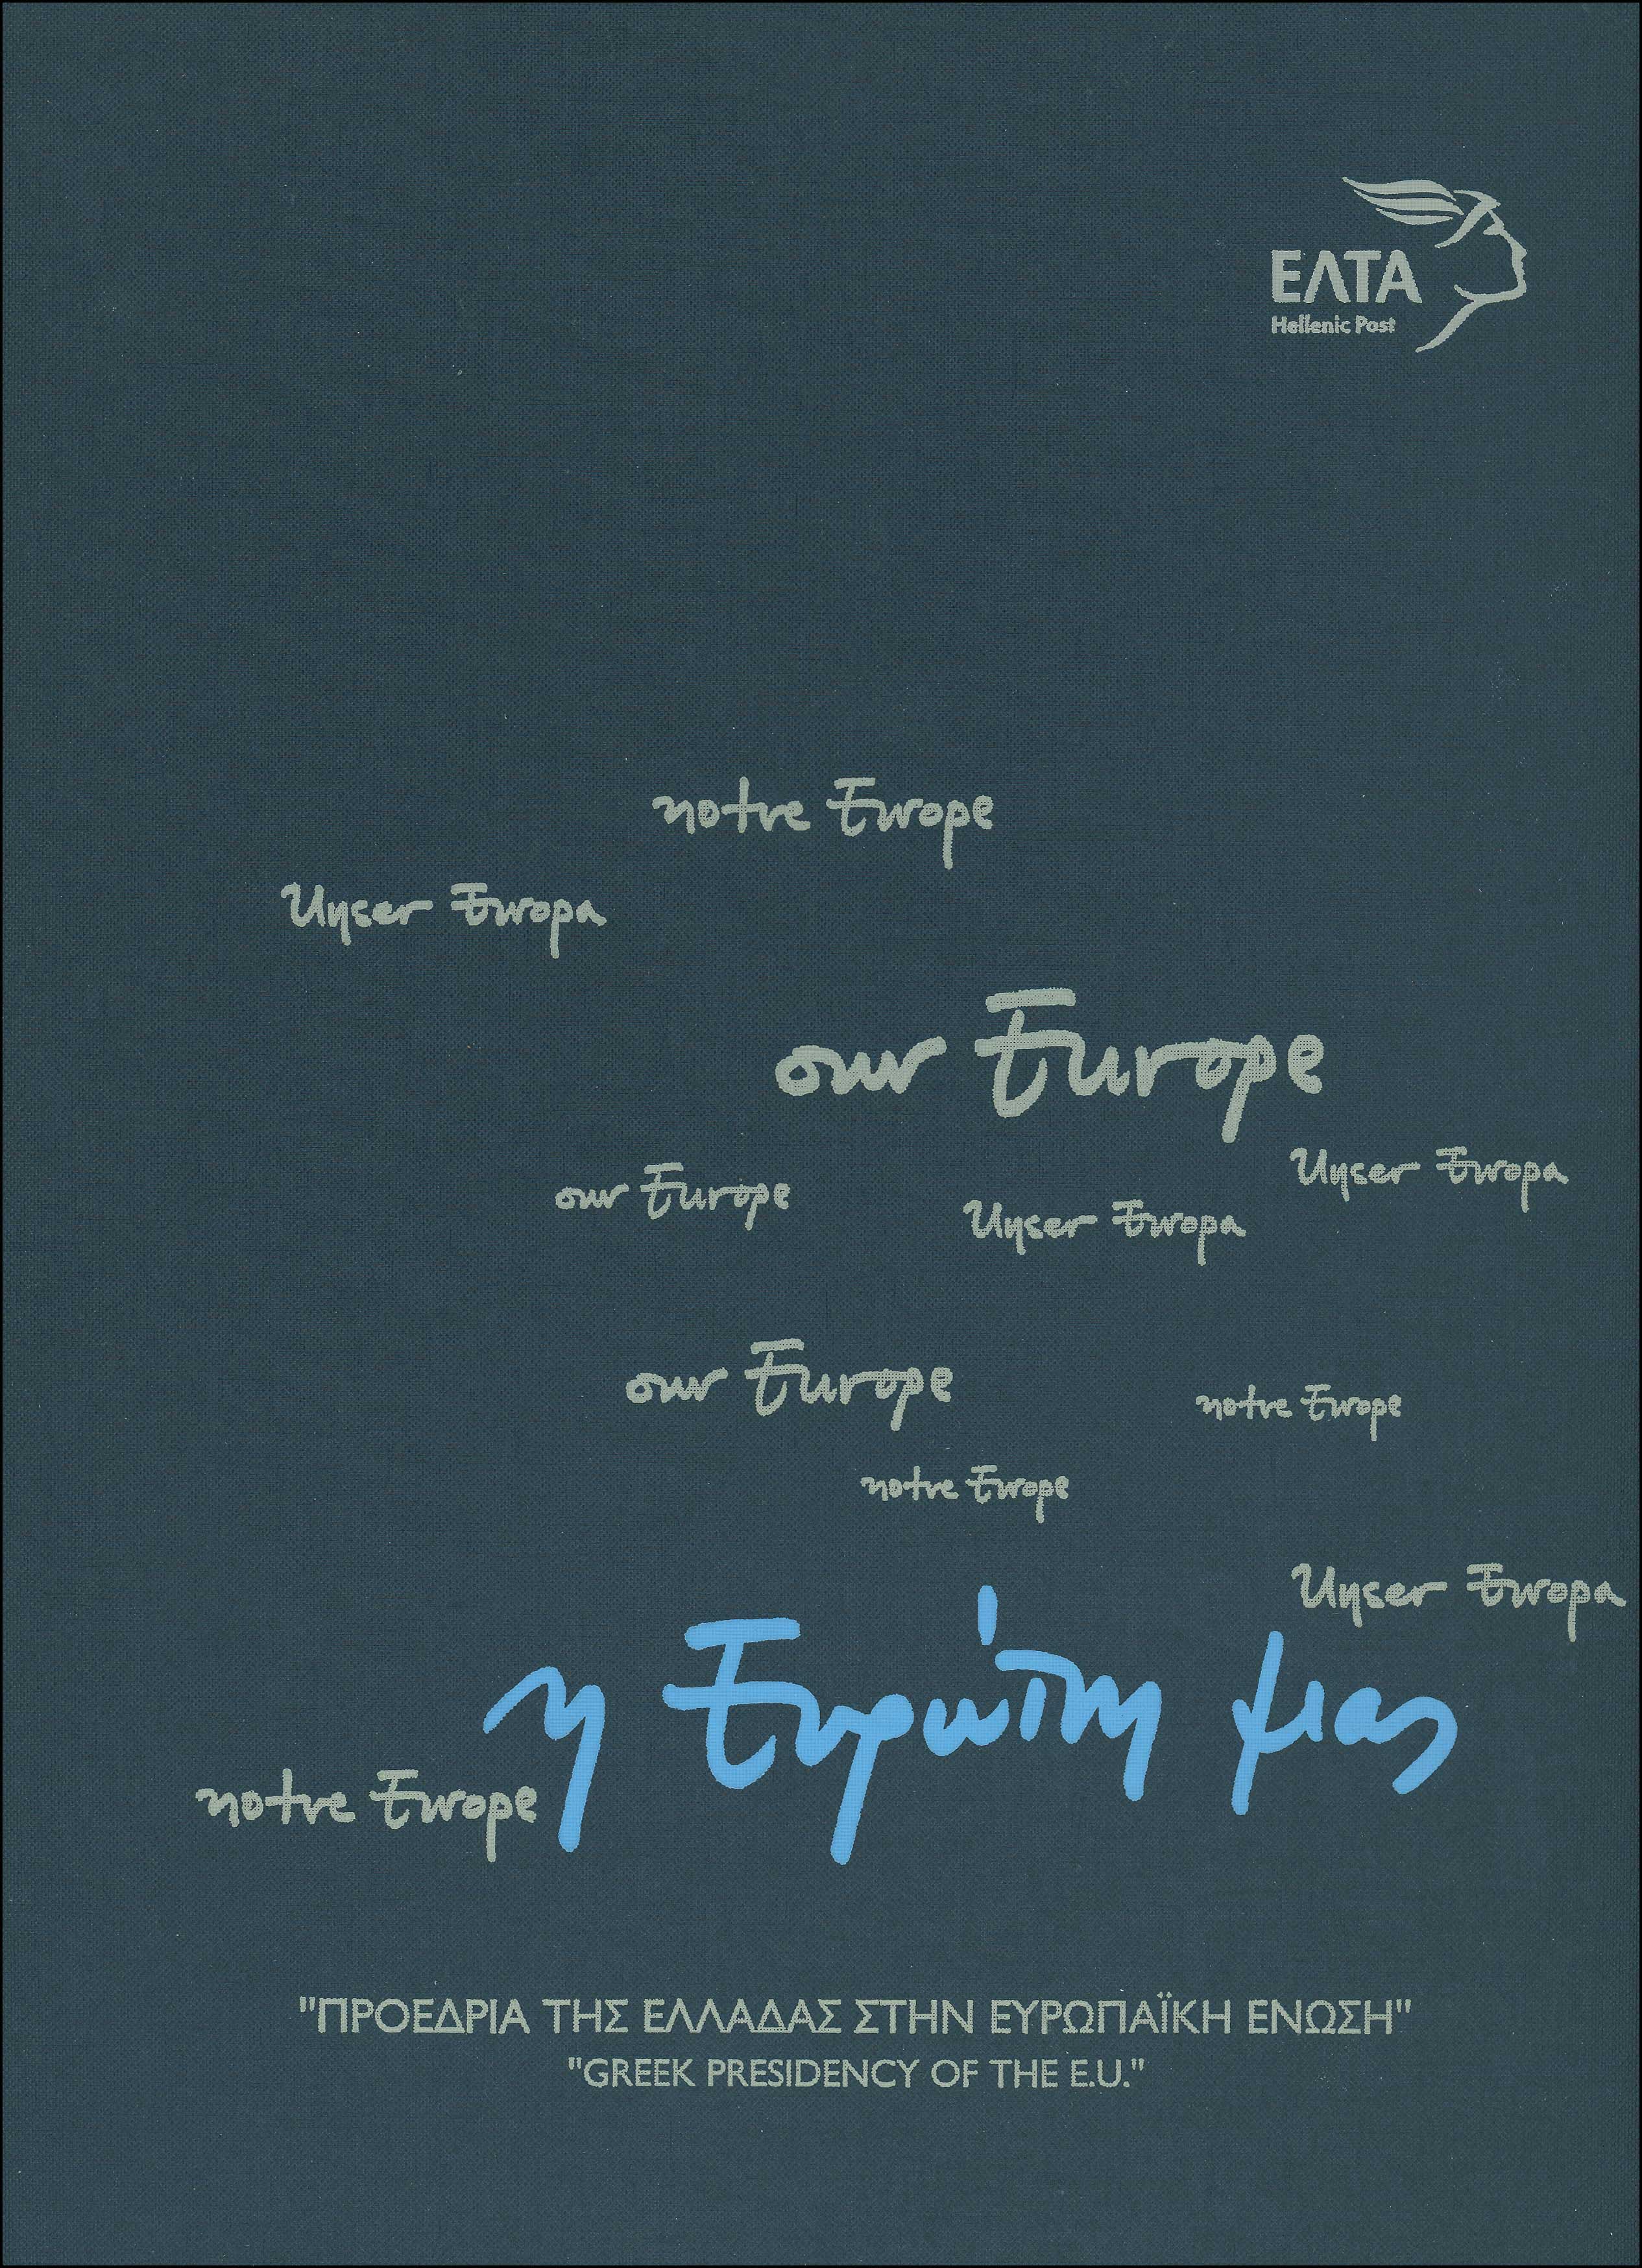 ΕΛΤΑ
Hellenic Post
notre Europe
Unser Europa
our Europe
Unser Europa
our Europe
Unser Europa
our Europe
notre Europe
notre Europe
Unser Europa
η Ευρώπη μας
notre Europe
"ΠΡΟΕΔΡΙΑ ΤΗΣ ΕΛΛΑΔΑΣ ΣΤΗΝ ΕΥΡΩΠΑΪΚΗ ΕΝΩΣΗ"
"GREEK PRESIDENCY OF THE E.U."